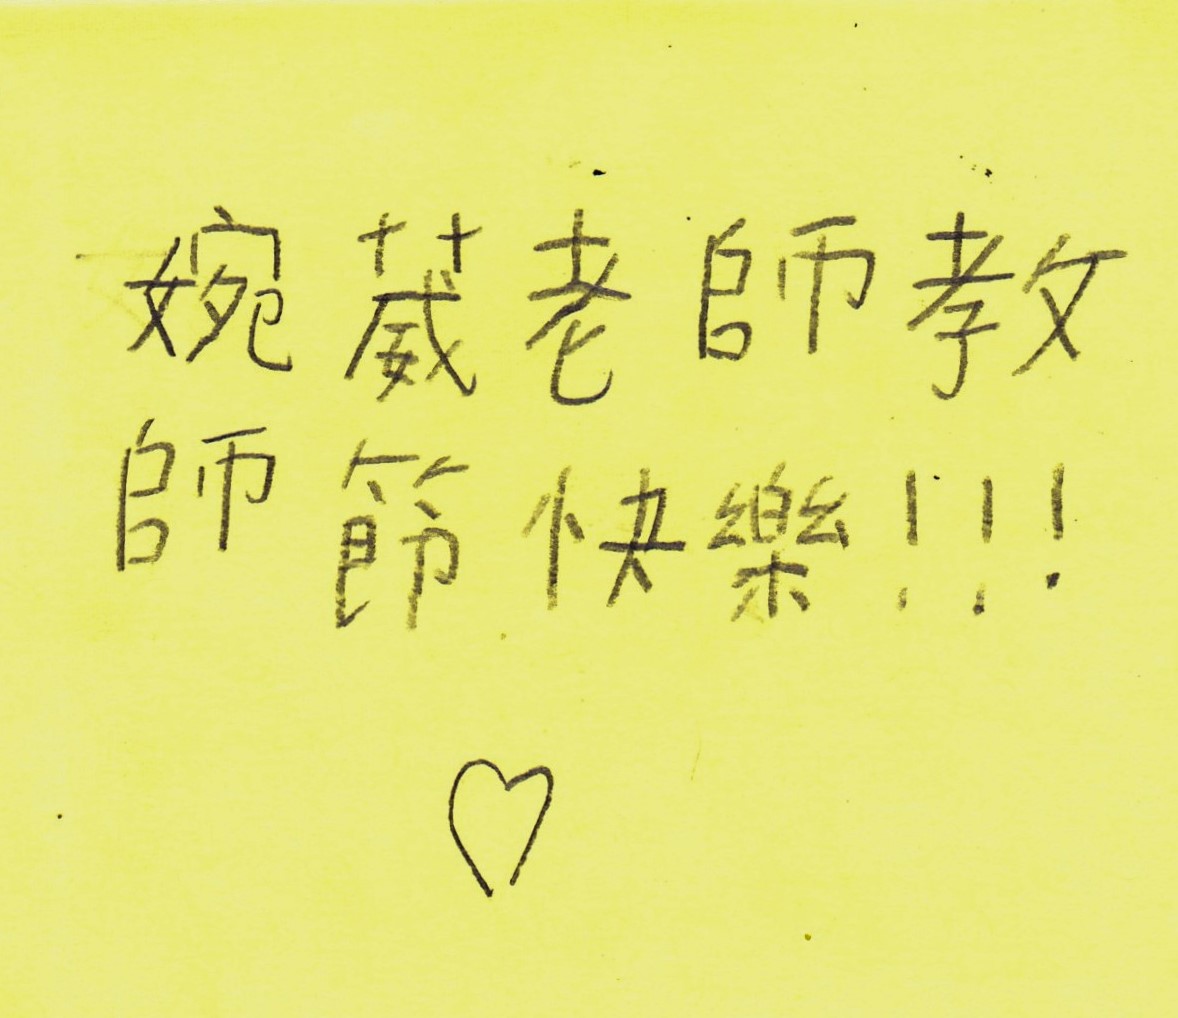 婉葳老師教
師節快樂!!!